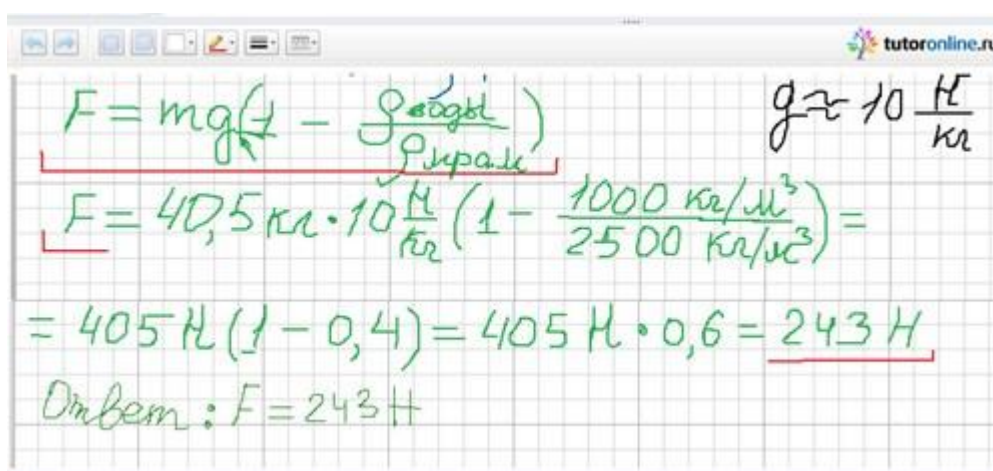 tutoronline.ru
F = mg(1 - ρводы/ρмрам)
g ≈ 10 Н/кг
F = 40,5 кг · 10 Н/кг (1 - 1000 кг/м³ / 2500 кг/м³) =
= 405 Н (1 - 0,4) = 405 Н · 0,6 = 243 Н
Ответ: F = 243 Н